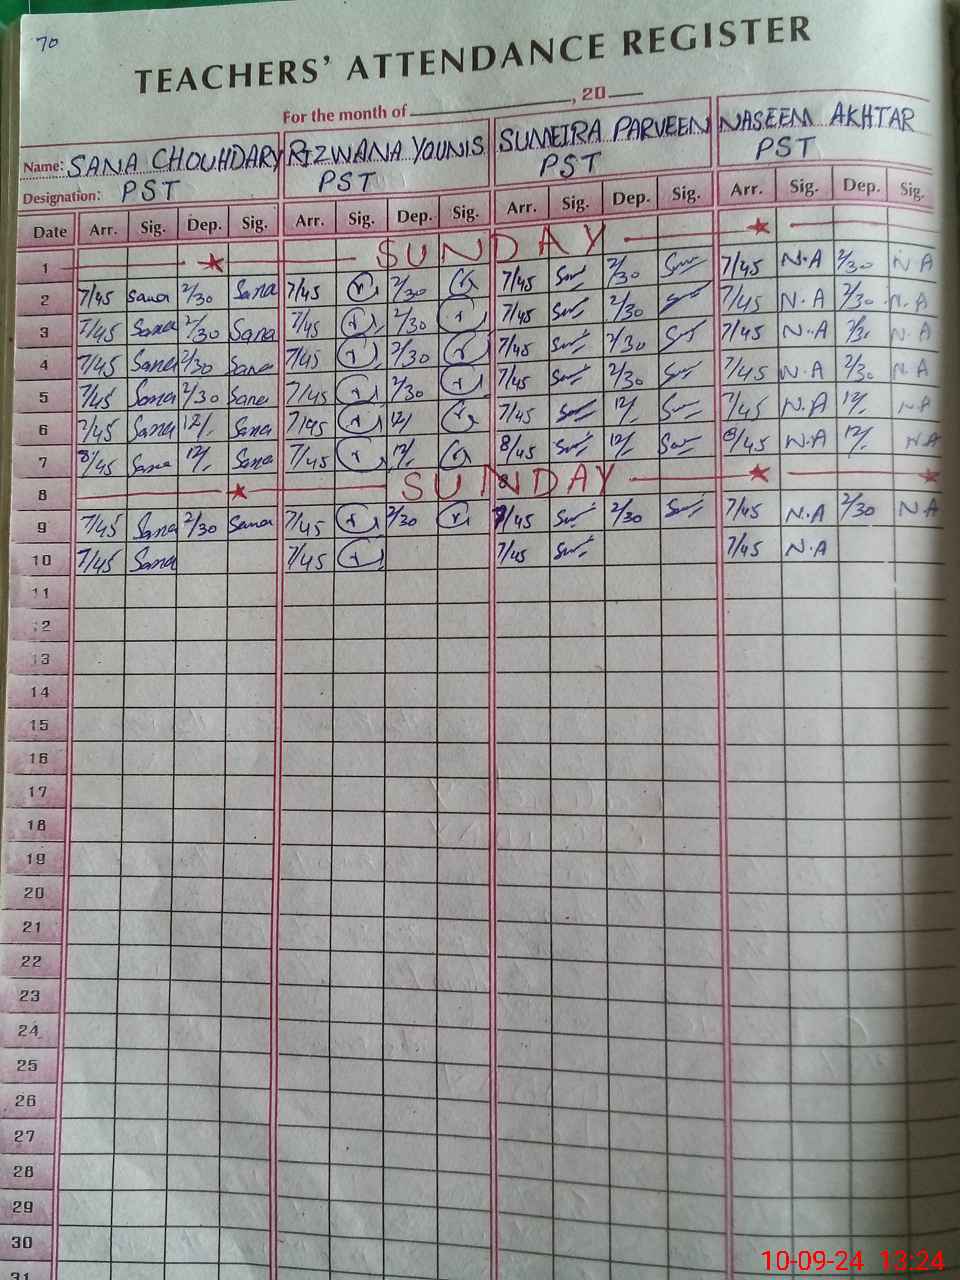 70
TEACHERS' ATTENDANCE REGISTER
For the month of , 20
Name: SANA CHOUHDARY RIZWANA YOUNIS SUMEIRA PARVEEN NASEEM AKHTAR
Designation: PST PST PST PST
Date Arr. Sig. Dep. Sig. Arr. Sig. Dep. Sig. Arr. Sig. Dep. Sig. Arr. Sig. Dep. Sig.
1 SUNDAY
2 7/45 Sana 2/30 Sana 7/45 2/30 7/45 2/30 7/45 N.A 2/30 N A
3 7/45 Sana 2/30 Sana 7/45 2/30 7/45 2/30 7/45 N.A 2/30 N.A
4 7/45 Sana 2/30 Sana 7/45 2/30 7/45 2/30 7/45 N.A N.A
5 7/45 Sana 2/30 Sana 7/45 2/30 7/45 2/30 7/45 N.A 2/30 N.A
6 7/45 Sana 12/. Sana 7/45 12/ 7/45 12/. 7/45 N.A 12/. NA
7 8/45 Sana 12/. Sana 7/45 12/. 8/45 12/. 8/45 N.A 12/. NA
8 SUNDAY
9 7/45 Sana 2/30 Sana 7/45 2/30 7/45 2/30 7/45 N.A 2/30 N.A
10 7/45 Sana 7/45 7/45 7/45 N.A
11
12
13
14
15
16
17
18
19
20
21
22
23
24
25
26
27
28
29
30
31
10-09-24 13:24